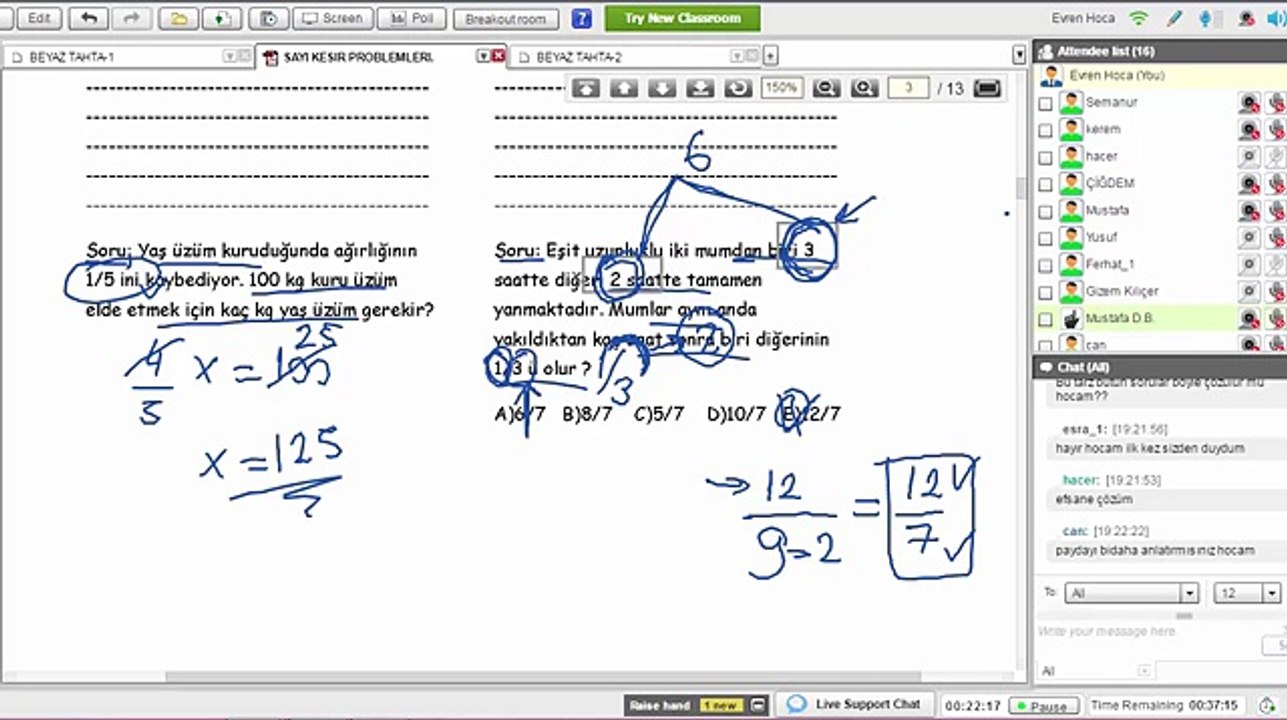 Edit
Screen
Poll
Breakout room
?
Try New Classroom
Evren Hoca
BEYAZ TAHTA-1
SAYI KESIR PROBLEMLERI.
BEYAZ TAHTA-2
+
150%
3 / 13
Soru: Yaş üzüm kuruduğunda ağırlığının
1/5 ini kaybediyor. 100 kg kuru üzüm
elde etmek için kaç kg yaş üzüm gerekir?
25
4/5 x = 100
x = 125
6
Soru: Eşit uzunluklu iki mumdan biri 3
saatte diğeri 2 saatte tamamen
yanmaktadır. Mumlar aynı anda
yakıldıktan kaç saat sonra biri diğerinin
1/3 ü olur ?
1/3
A)6/7 B)8/7 C)5/7 D)10/7 E)12/7
12/9-2 = 12/7
Attendee list (16)
Evren Hoca (You)
Semanur
kerem
hacer
ÇİĞDEM
Mustafa
Yusuf
Ferhat_1
Gizem Kılıçer
Mustafa D.B.
can
Chat (All)
Bu tarz bütün sorular böyle çözülür mü
hocam??
esra_1: [19:21:56]
hayır hocam ilk kez sizden duydum
hacer: [19:21:53]
efsane çözüm
can: [19:22:22]
paydayı bidaha anlatırmısınız hocam
To: All 12
Write your message here.
All
Raise hand 1 new
Live Support Chat
00:22:17
Pause
Time Remaining 00:37:15